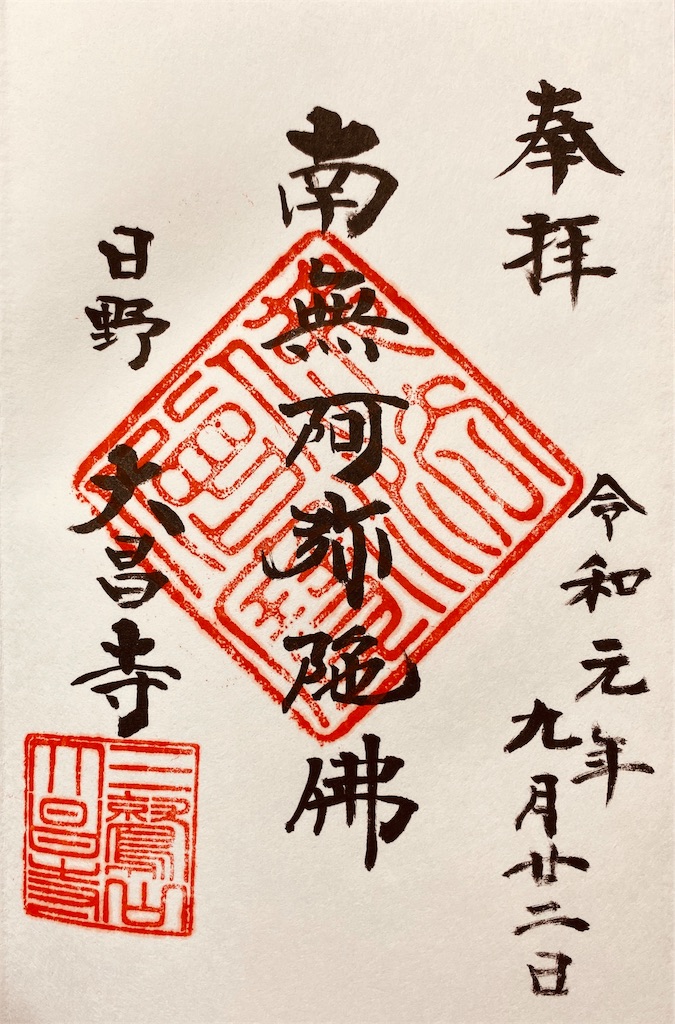 奉拝
令和元年
九月廿二日
南無阿弥陀佛
日野
大昌寺
三鷲山
大昌寺